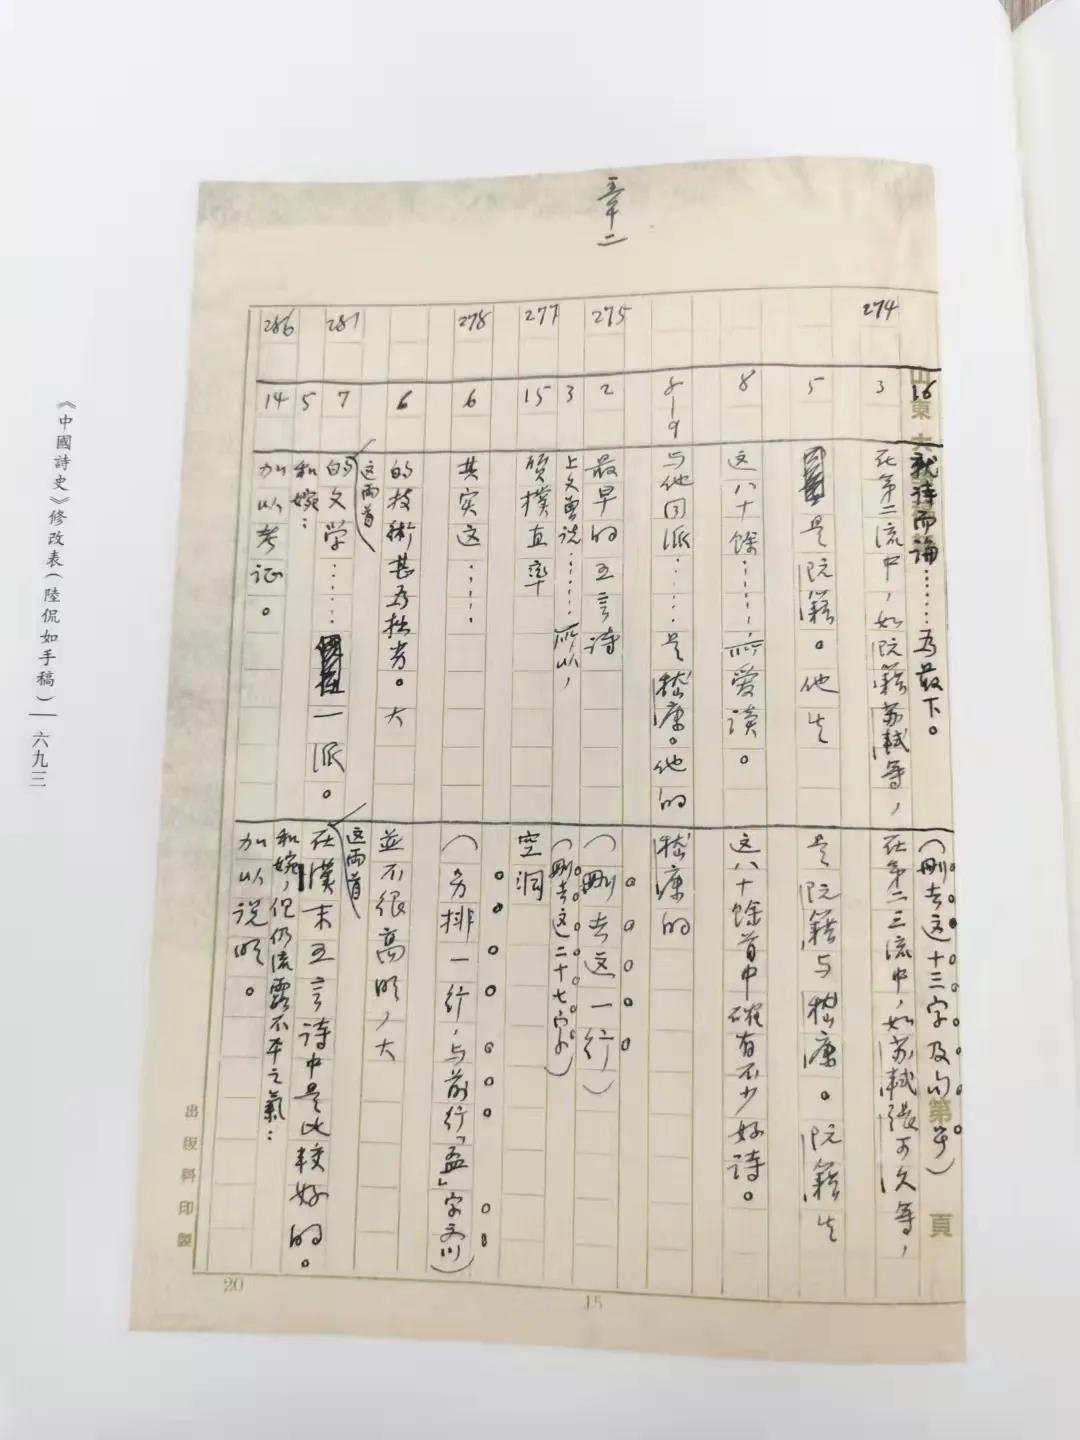 274
16
就诗而论……为最下。
(删去这十三字及句号)
3
在第二流中，如阮籍苏轼等，
在第二三流中，如苏轼张可久等，
5
是阮籍。他生
是阮籍与嵇康。阮籍生
8
这八十馀……所爱读。
这八十馀首中确有不少好诗。
8—9
与他同派……是嵇康。他的
嵇康的
275
2
最早的五言诗
(删去这一行)
3
上文曾说……所以，
(删去这二十七字)
277
15
质樸直率
空洞
278
6
其实这……
(另排一行，与前行「盃」字
6
的技術甚为拙劣。大
並不很高明，大
281
7
这两首的文学……一派。
这两首在漢末五言诗中是比较好的。
5
和婉：
和婉，但仍流露不平之氣：
286
14
加以考证。
加以说明。
山東大
第
頁
出版科印製
15
20
《中國詩史》修改表(陸侃如手稿)
六九三